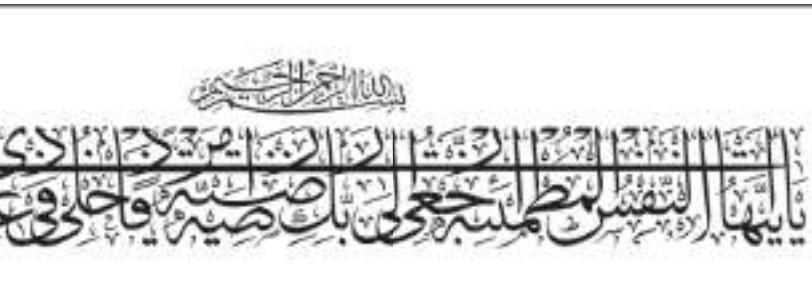 بسم الله الرحمن الرحيم
يا أيتها النفس المطمئنة ارجعي إلى ربك راضية مرضية فادخلي في